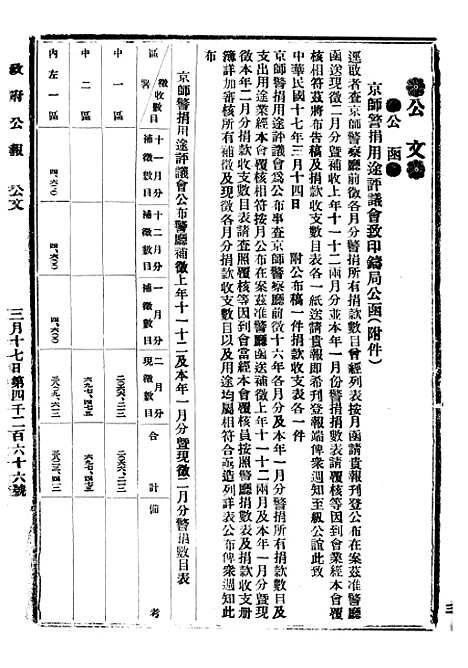 公文
公函
京師警捐用途評議會致印鑄局公函(附件)
逕啟者查京師警察廳前徵各月分警捐所有捐款數目曾經列表按月函請貴報刊登公布在案茲准警廳
函送現徵二月分暨補收上年十一十二兩月分並本年一月份警捐捐數表請覆核等因到會業經本會覆
核相符茲將布告稿及捐款收支數目表各一紙送請貴報即希刊登報端俾衆週知至級公誼此致
中華民國十七年三月十四日 附公布稿一件捐款收支表各一件
京師警捐用途評議會爲公布事查京師警察廳前徵十六年各月分及本年一月分警捐所有捐款數目及
支出用途業經本會覆核相符按月公布在案茲准警廳函送補徵上年十一十二兩月及本年一月分暨現
徵本年二月分捐款收支數目表請查照覆核等因到會當經本會覆核員按照警廳捐數表及捐款收支册
簿詳加審核所有補徵及現徵各月分捐款收支數目以及用途均屬相符合亟造列詳表公布俾衆週知此
布
京師警捐用途評議會公布警廳補徵上年十一十二及本年一月分暨現徵二月分警捐數目表
區署 徵收數目 十一月分補徵數目 十二月分補徵數目 一月分補徵數目 二月分現徵數目 合計 備考
中一區
中二區
內左一區
政府公報 公文
三月十七日第四千二百六十六號